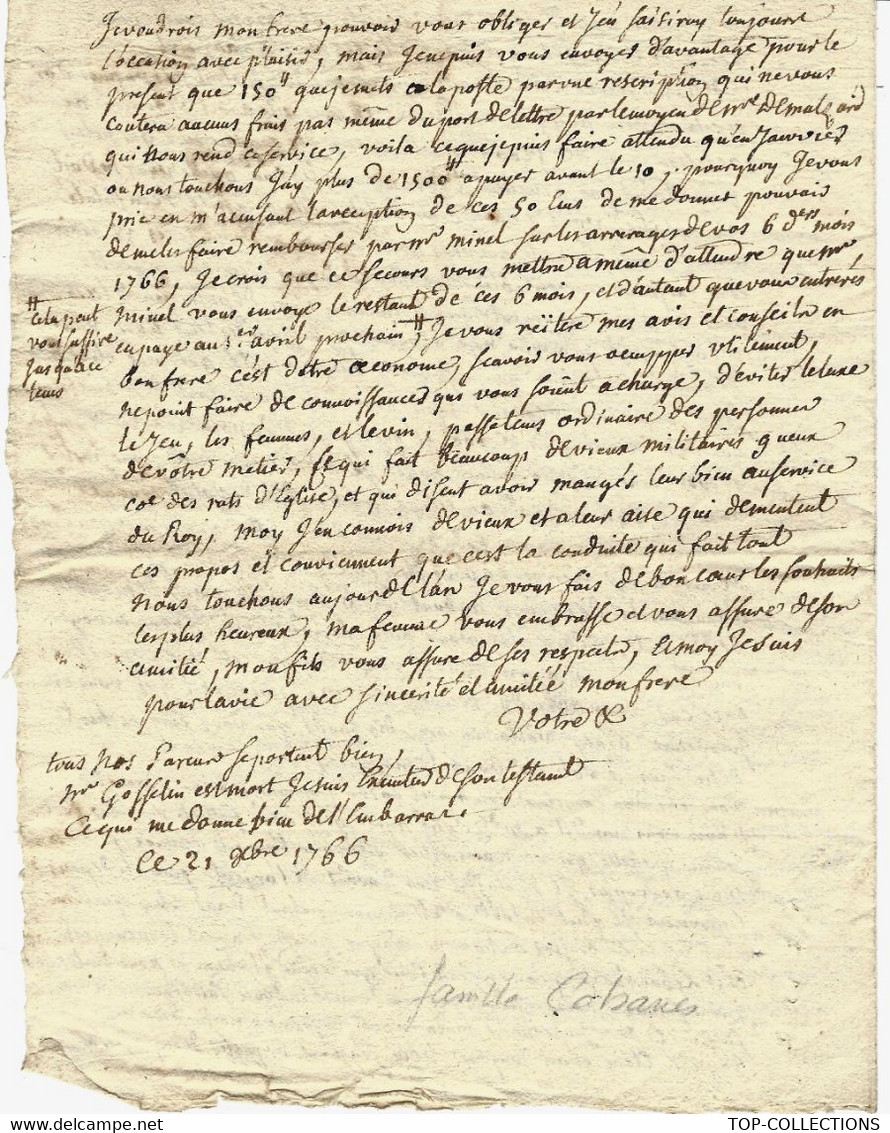 Je voudrois mon frere pouvoir vous obliger et j'en saisiray toujours
l'occation avec plaisir, mais Je ne puis vous envoyer d'avantage pour le
present que 150# que je mets a la poste par une rescription qui ne vous
coutera aucuns frais pas même du port de lettre par le moyen de Mre de
qui nous rend ce service, voila ce que je puis faire attendu qu'en Janvier
ou nous touchons J'ay plus de 1500# a payer avant le 10, pourquoy Je vous
prie en m'accusant la reception de ces 50 Ecus de me donner pouvoir
de me les faire rembourser par Mr minel sur les arrerages de vos 6 ders mois
1766, Je crois que ce secours vous mettra a même d'attendre que Mr
minel vous envoye le restant de ces 6 mois, et d'autant que vous entrerés
en paye au 1er avril prochain, # Je vous réitere mes avis et conseils en
# cela peut
vous suffire
jusqu'a ce
tems
bon frere c'est d'etre oeconome, scavoir vous occupper utilement,
ne point faire de connoissances qui vous soient a charge, d'éviter le luxe
le Jeu, les femmes, et le vin, passetems ordinaire des personnes
de vôtre metier, et qui fait beaucoup de vieux militaires gueux
coe des rats d'Eglise, et qui disent avoir mangés leur bien au service
du Roy, moy J'en connois de vieux et a leur aise qui dementent
ces propos et conviennent que c'est la conduite qui fait tout
Nous touchons au jour de l'an Je vous fais de bon coeur les souhaits
les plus heureux, ma femme vous embrasse et vous assure de son
amitié, mon fils vous assure de ses respects, et moy Je suis
pour la vie avec sincerité et amitié mon frere
Votre &
tous nos Parens se portent bien,
Mr Gosselin est mort Je suis de son testament
ce qui me donne bien de l'Embarras.
Ce 21 xbre 1766
famille Cabanes
TOP-COLLECTIONS